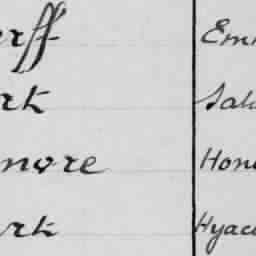 rff Em
rk Sal
nore Hon
rk Hyac